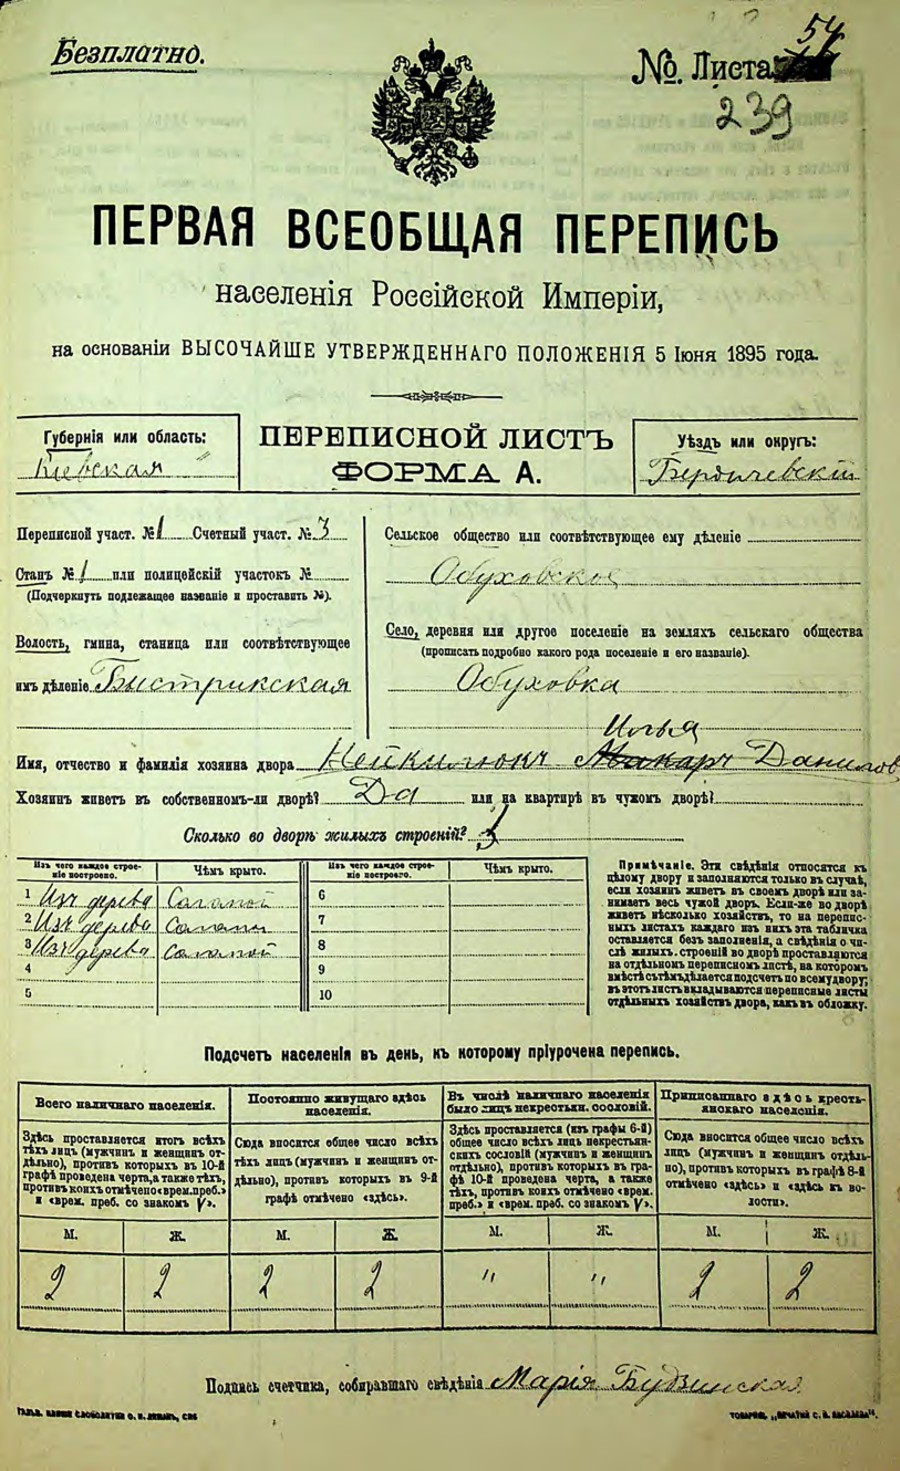 Безплатно.
№. Листа 54
239
ПЕРВАЯ ВСЕОБЩАЯ ПЕРЕПИСЬ
населенія Россійской Имперіи,
на основаніи ВЫСОЧАЙШЕ УТВЕРЖДЕННАГО ПОЛОЖЕНІЯ 5 Іюня 1895 года.
Губернія или область:
Кіевская
ПЕРЕПИСНОЙ ЛИСТЪ
ФОРМА А.
Уѣздъ или округъ:
Бердичевскій
Переписной участ. №1 Счетный участ. №3
Станъ №1 или полицейскій участокъ №
(Подчеркнуть подлежащее названіе и проставить №).
Волость, гмина, станица или соотвѣтствующее
имъ дѣленіе Быстрикская
Сельское общество или соотвѣтствующее ему дѣленіе
Обуховское
Село, деревня или другое поселеніе на земляхъ сельскаго общества
(прописать подробно какого рода поселеніе и его названіе).
Обуховка
Илья
Имя, отчество и фамилія хозяина двора Нейкилюкъ Макаръ Данилов
Хозяинъ живетъ въ собственномъ-ли дворѣ? Да или на квартирѣ въ чужомъ дворѣ?
Сколько во дворѣ жилыхъ строеній? 3
Изъ чего каждое строеніе построено. Чѣмъ крыто. Изъ чего каждое строеніе построено. Чѣмъ крыто.
1 Изъ дерева Соломой 6
2 Изъ дерева Соломой 7
3 Изъ дерева Соломой 8
4 9
5 10
Примѣчаніе. Эти свѣдѣнія относятся къ
цѣлому двору и заполняются только въ случаѣ,
если хозяинъ живетъ въ своемъ дворѣ или за-
нимаетъ весь чужой дворъ. Если-же во дворѣ
живетъ нѣсколько хозяйствъ, то на перепис-
ныхъ листахъ каждаго изъ нихъ эта табличка
оставляется безъ заполненія, а свѣдѣнія о чи-
слѣ жилыхъ строеній во дворѣ проставляются
на отдѣльномъ переписномъ листѣ, на которомъ
вмѣстѣ съ тѣмъ дѣлается подсчетъ по всему двору;
въ этотъ листъ вкладываются переписные листы
отдѣльныхъ хозяйствъ двора, какъ въ обложку.
Подсчетъ населенія въ день, къ которому пріурочена перепись.
Всего наличнаго населенія.
Здѣсь проставляется итогъ всѣхъ
тѣхъ лицъ (мужчинъ и женщинъ от-
дѣльно), противъ которыхъ въ 10-й
графѣ проведена черта, а также тѣхъ,
противъ коихъ отмѣчено «врем. преб.»
и «врем. преб. со знакомъ V».
Постоянно живущаго здѣсь
населенія.
Сюда вносится общее число всѣхъ
тѣхъ лицъ (мужчинъ и женщинъ от-
дѣльно), противъ которыхъ въ 9-й
графѣ отмѣчено «здѣсь».
Въ числѣ наличнаго населенія
было лицъ некрестьян. сословій.
Здѣсь проставляется (изъ графы 6-й)
общее число всѣхъ лицъ некрестьян-
скихъ сословій (мужчинъ и женщинъ
отдѣльно), противъ которыхъ въ гра-
фѣ 10-й проведена черта, а также
тѣхъ, противъ коихъ отмѣчено «врем.
преб.» и «врем. преб. со знакомъ V».
Приписаннаго здѣсь кресть-
янскаго населенія.
Сюда вносится общее число всѣхъ
лицъ (мужчинъ и женщинъ отдѣль-
но), противъ которыхъ въ графѣ 8-й
отмѣчено «здѣсь» и «здѣсь къ во-
лости».
М. Ж. М. Ж. М. Ж. М. Ж.
2 2 2 2 " " 2 2
Подпись счетчика, собиравшаго свѣдѣнія Марія Будзинская